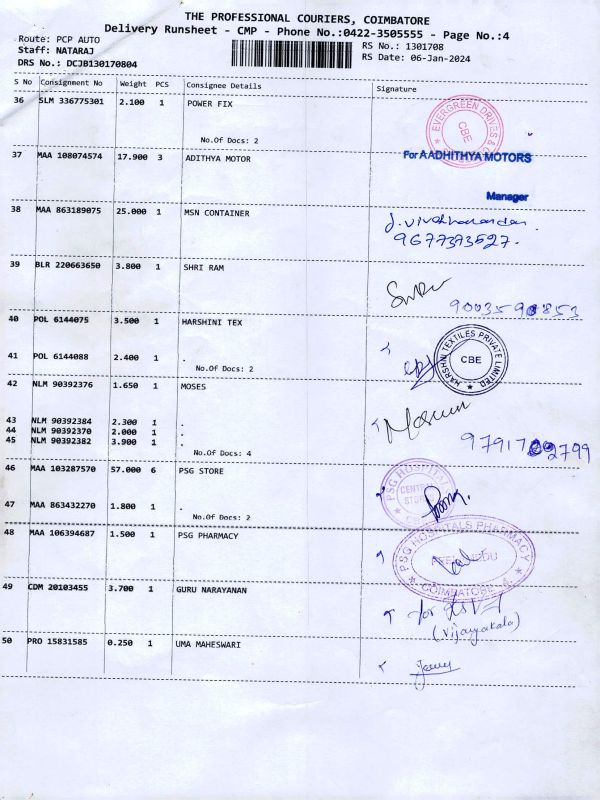 THE PROFESSIONAL COURIERS, COIMBATORE
Delivery Runsheet - CMP - Phone No.:0422-3505555 - Page No.:4
Route: PCP AUTO
Staff: NATARAJ
RS No.: 1301708
DRS No.: DCJB130170804
RS Date: 06-Jan-2024
S No Consignment No Weight PCS Consignee Details Signature
36 SLM 336775301 2.100 1 POWER FIX
EVERGREEN DRIVES &
CBE
No.Of Docs: 2
37 MAA 108074574 17.900 3 ADITHYA MOTOR
For AADHITHYA MOTORS
Manager
38 MAA 863189075 25.000 1 MSN CONTAINER
9677373527.
39 BLR 220663650 3.800 1 SHRI RAM
40 POL 6144075 3.500 1 HARSHINI TEX
HARSHNI TEXTILES PRIVATE LIMITED
CBE
41 POL 6144088 2.400 1 .
No.Of Docs: 2
42 NLM 90392376 1.650 1 MOSES
43 NLM 90392384 2.300 1 .
44 NLM 90392370 2.000 1 .
45 NLM 90392382 3.900 1 .
No.Of Docs: 4
46 MAA 103287570 57.000 6 PSG STORE
PSG HOSPITALS
CENTRAL
47 MAA 863432270 1.800 1 .
No.Of Docs: 2
48 MAA 106394687 1.500 1 PSG PHARMACY
PSG HOSPITALS PHARMACY
COIMBATORE
49 CDM 20103455 3.700 1 GURU NARAYANAN
for
(Vijayakala)
50 PRO 15831585 0.250 1 UMA MAHESWARI